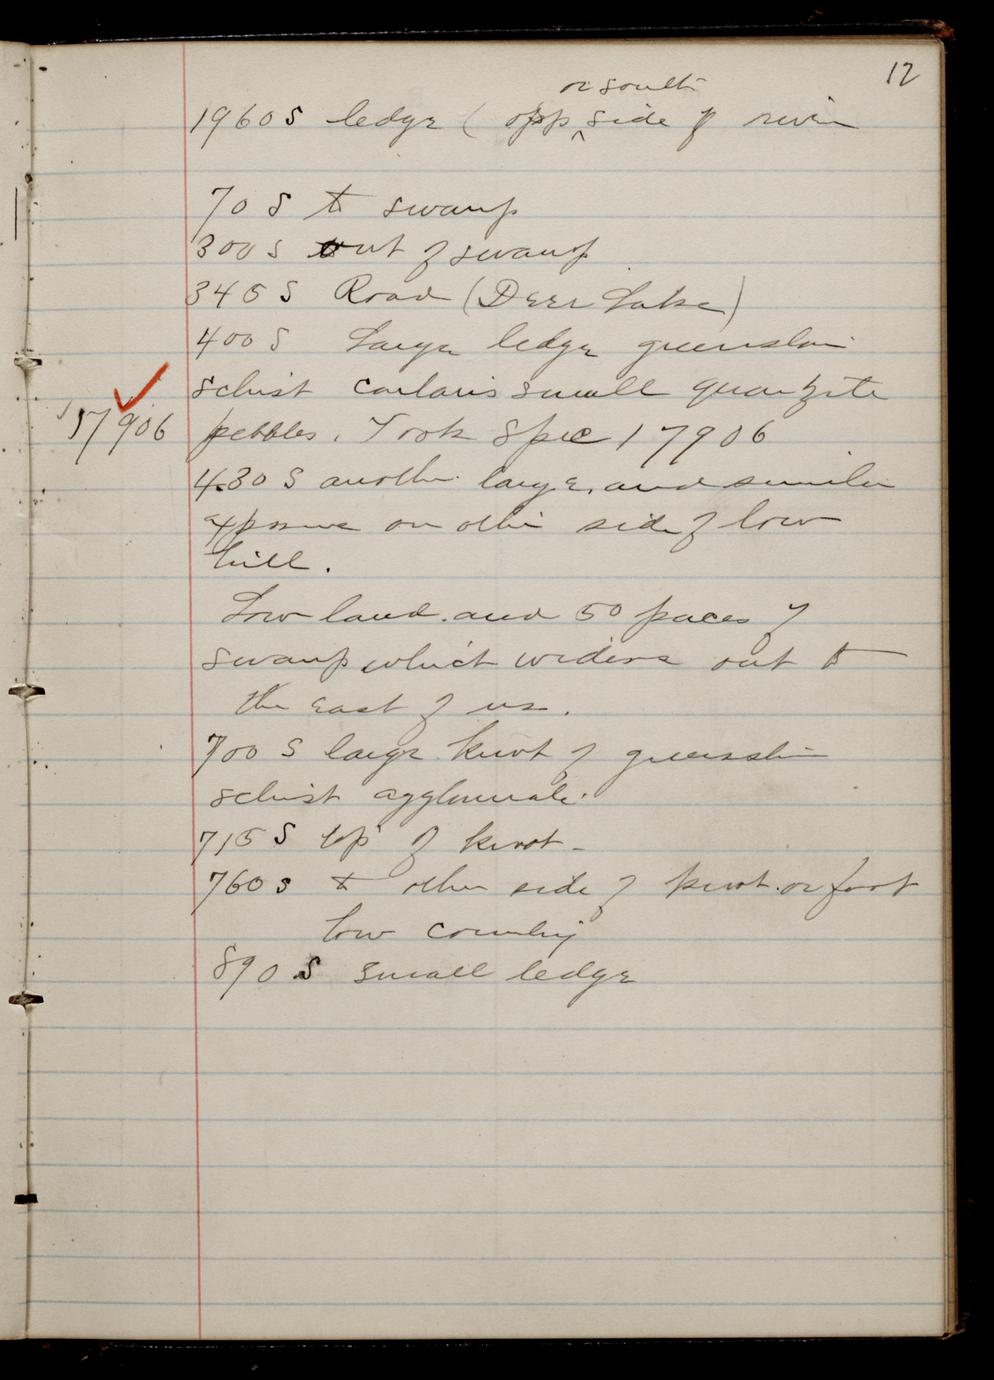 12
or south
1960 S ledge ( opp ^ side of river
70 S to swamp
300 S out of swamp
345 S Road (Deer Lake)
400 S Large ledge greenston
schist contains small quartzite
17906 pebbles. Took Spec 17906
430 S another large, and similar
exposure on other side of low
hill.
Low land and 50 paces of
swamp which widens out to
the east of us.
700 S large knot of greenston
schist agglomerate.
715 S top of knot -
760 S to other side of knot or foot
low country
890 S small ledge